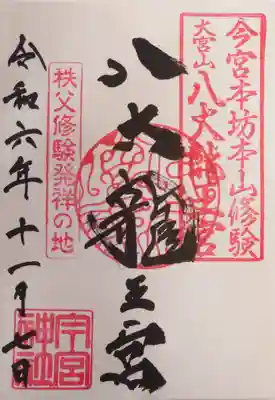 今宮本坊本山修験
大宮山
八大龍王宮
八大龍王宮
秩父修験発祥の地
令和六年十一月七日
今宮
神社